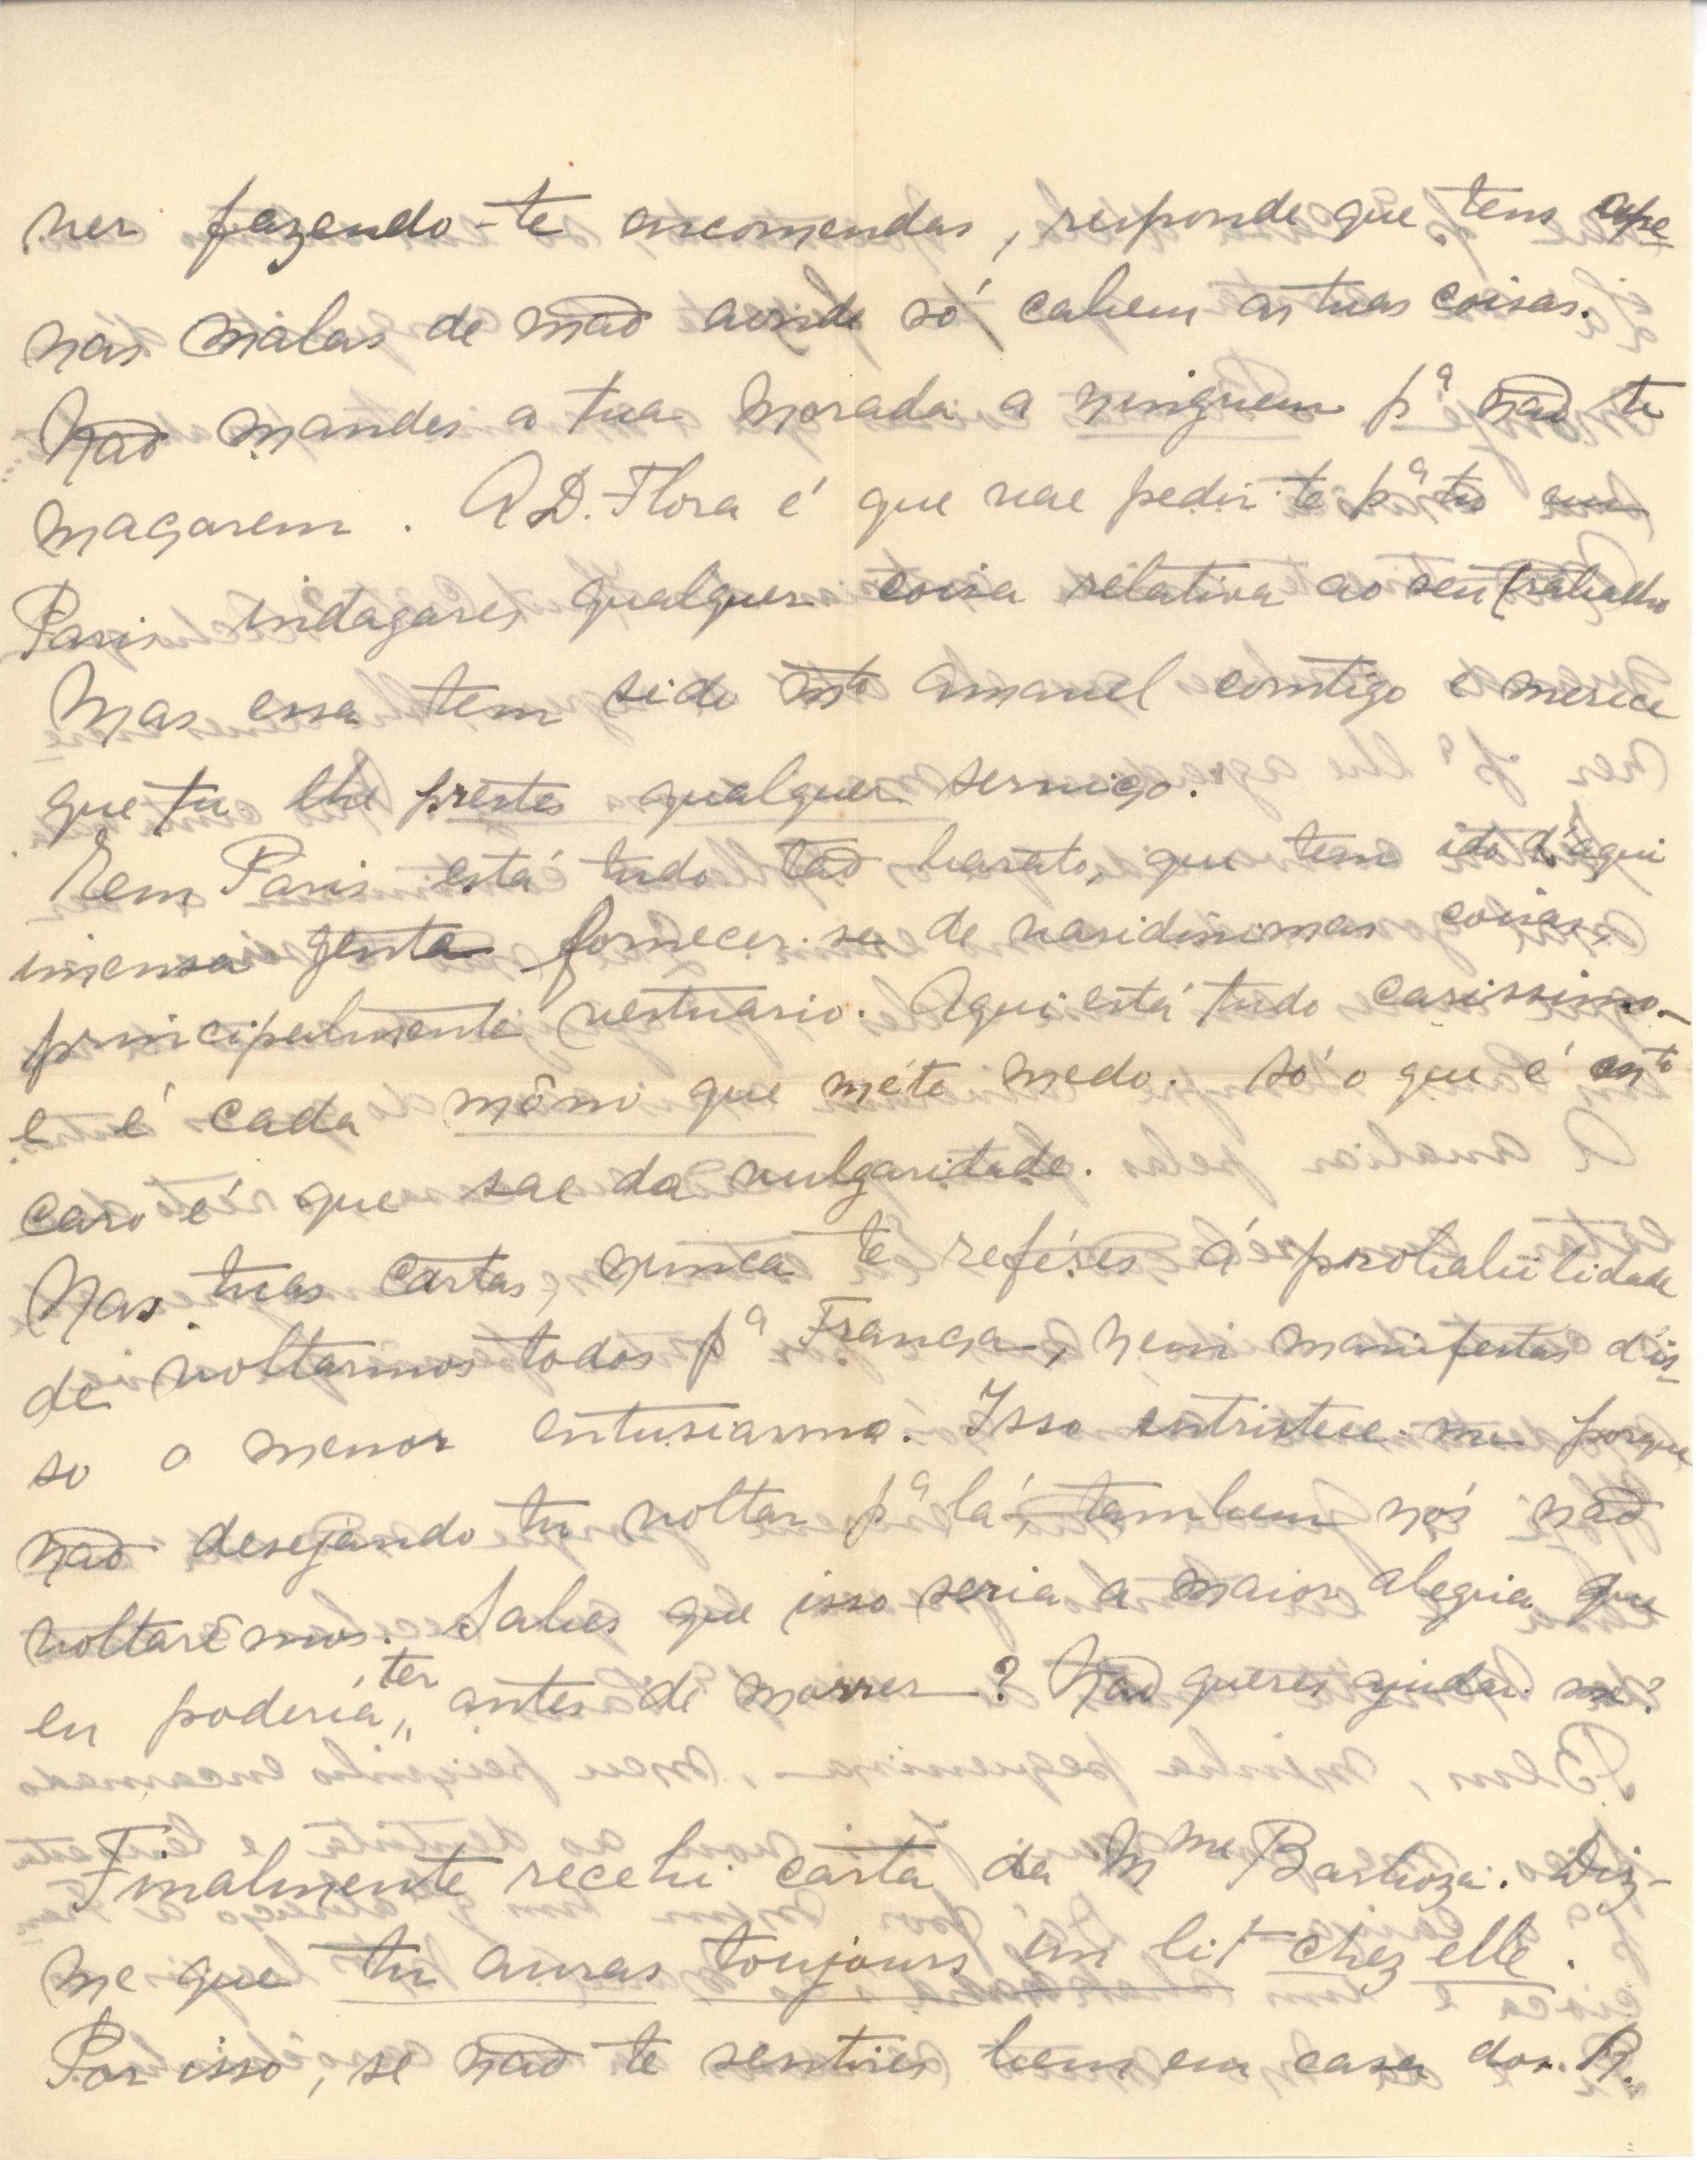 ver fazendo-te encomendas, responde que tens ape
nas malas de mão aonde só cabem as tuas coisas.
Não mandes a tua morada a ninguem pª não te
maçarem. A D. Flora é que vae pedir-te pª tu em
Paris indagares qualquer coisa relativa ao seu trabalho
Mas essa tem sido mto amavel comtigo e merece
que tu lhe prestes qualquer serviço.
Em Paris está tudo tão barato, que tem ido d'aqui
imensa gente fornecer-se de variadissimas coisas,
principalmente vestuario. Aqui está tudo carissimo
e é cada môno que méte medo. Só o que é mto
caro é que sae da vulgaridade.
Nas tuas cartas, nunca te reféres á probabilidade
de voltarmos todos pª França, nem manifestas d'is-
so o menor entusiasmo. Isso entristece-me porque
não desejando tu voltar pª lá, tambem nós não
voltarêmos. Sabes que isso seria a maior alegria que
eu poderia ter antes de morrer? Não queres ajudar-me?
Finalmente recebi carta da Mme Barboza. Diz-
me que tu auras toujours un lit chez elle.
Por isso, se não te sentires bem em casa dos R.